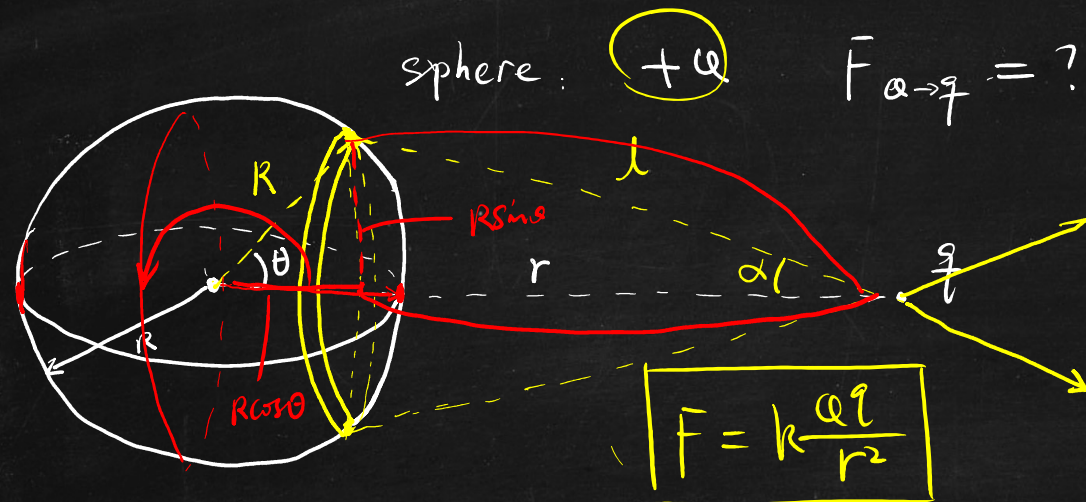 sphere: +Q F Q→q = ?
R
l
Rsinθ
θ
r
α
q
R
Rcosθ
F = k Qq / r²